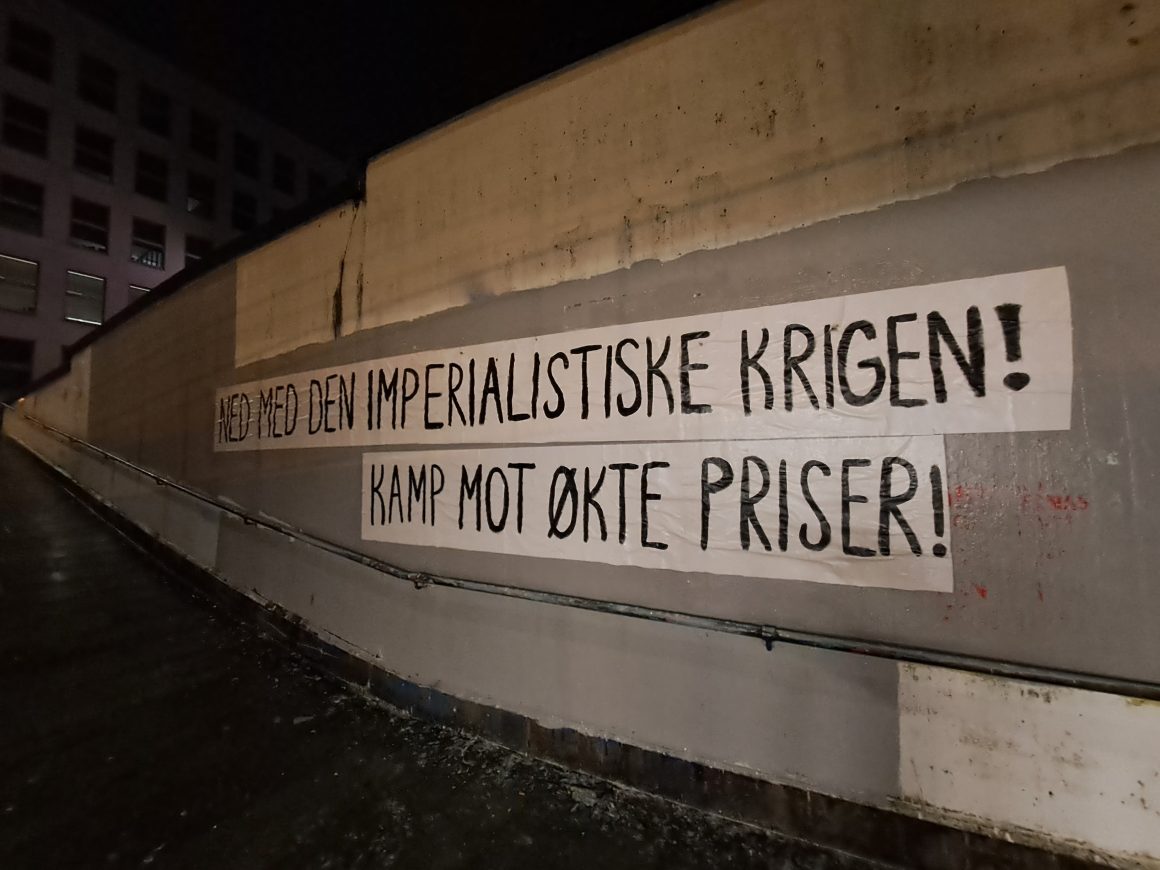 NED MED DEN IMPERIALISTISKE KRIGEN!
KAMP MOT ØKTE PRISER!